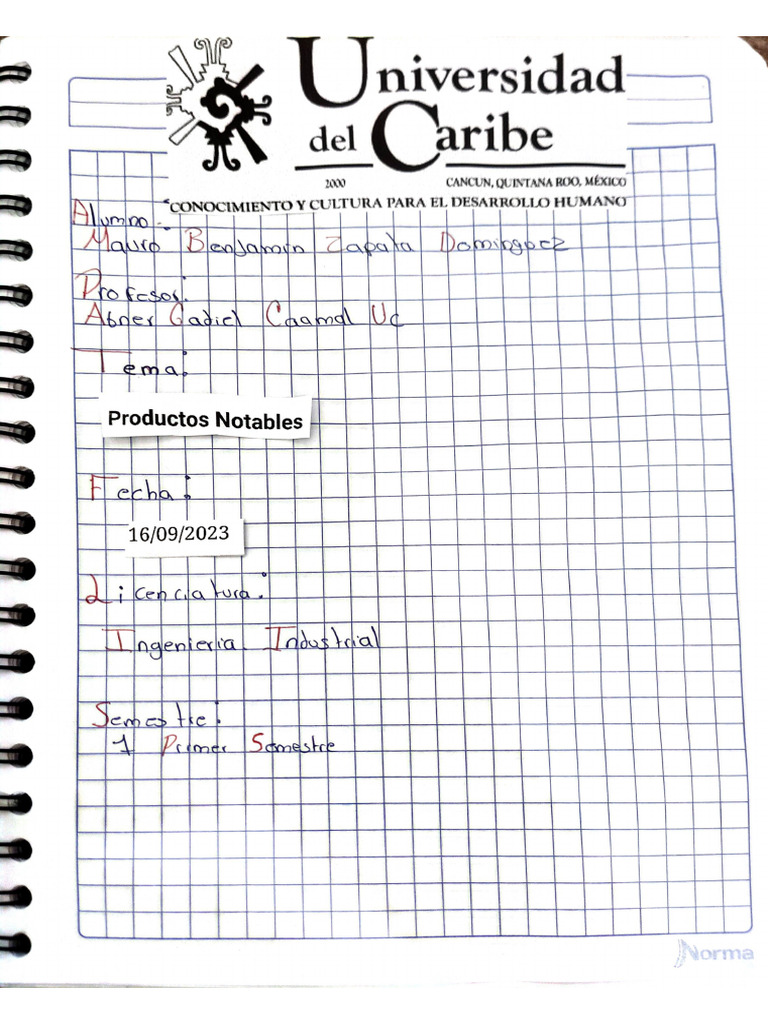 Universidad
del Caribe
2000 CANCUN, QUINTANA ROO, MÉXICO
"CONOCIMIENTO Y CULTURA PARA EL DESARROLLO HUMANO"
Alumno:
Mauro Benjamin Zapata Dominguez
Profesor:
Abner Gadiel Caamal Uc
Tema:
Productos Notables
Fecha:
16/09/2023
Licenciatura:
Ingenieria Industrial
Semestre:
1 Primer Semestre
Norma